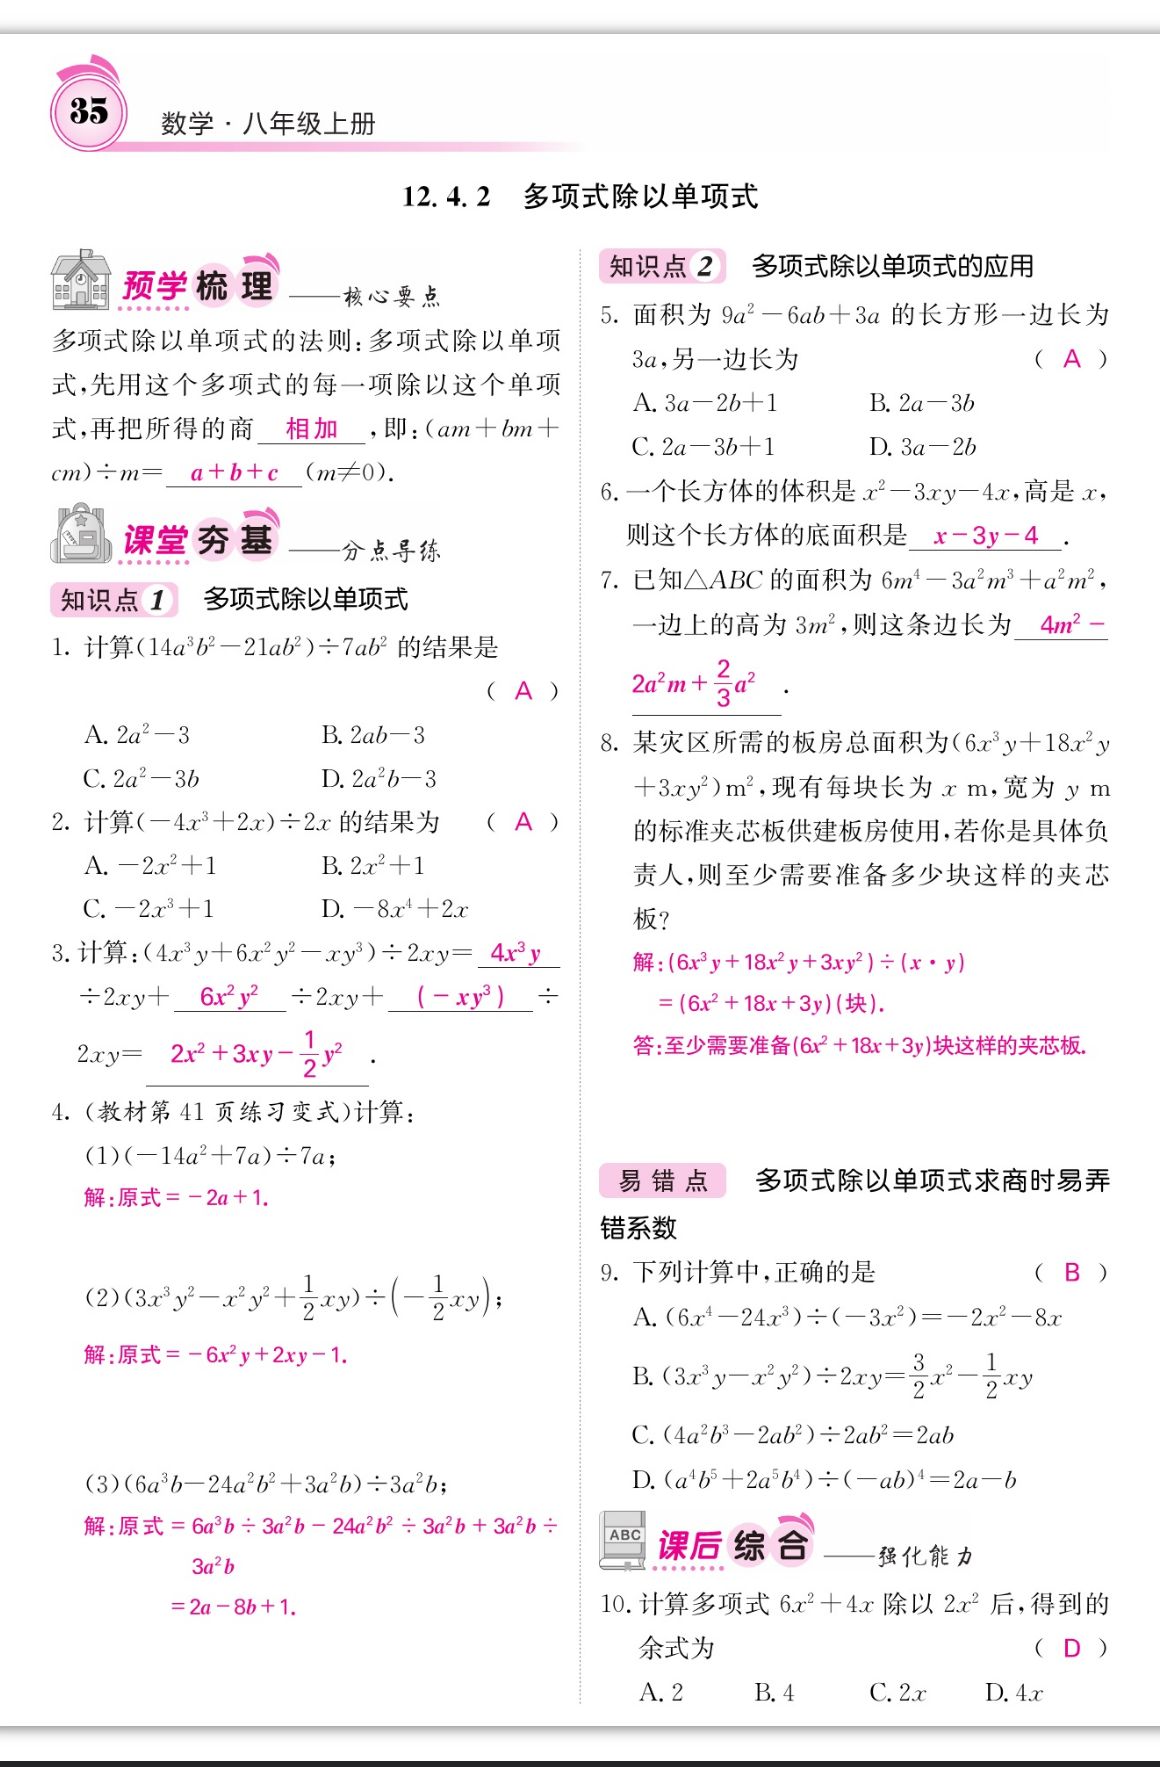 35
数学·八年级上册
12.4.2 多项式除以单项式
预学梳理——核心要点
多项式除以单项式的法则:多项式除以单项
式,先用这个多项式的每一项除以这个单项
式,再把所得的商 相加 ,即:(am+bm+
cm)÷m= a+b+c (m≠0).
课堂夯基——分点导练
知识点1 多项式除以单项式
1. 计算(14a³b²-21ab²)÷7ab² 的结果是
( A )
A. 2a²-3 B. 2ab-3
C. 2a²-3b D. 2a²b-3
2. 计算(-4x³+2x)÷2x 的结果为 ( A )
A. -2x²+1 B. 2x²+1
C. -2x³+1 D. -8x⁴+2x
3. 计算:(4x³y+6x²y²-xy³)÷2xy= 4x³y
÷2xy+ 6x²y² ÷2xy+ (-xy³) ÷
2xy= 2x²+3xy-1/2y² .
4. (教材第 41 页练习变式)计算:
(1)(-14a²+7a)÷7a;
解:原式=-2a+1.
(2)(3x³y²-x²y²+1/2xy)÷(-1/2xy);
解:原式=-6x²y+2xy-1.
(3)(6a³b-24a²b²+3a²b)÷3a²b;
解:原式=6a³b÷3a²b-24a²b²÷3a²b+3a²b÷
3a²b
=2a-8b+1.
知识点2 多项式除以单项式的应用
5. 面积为 9a²-6ab+3a 的长方形一边长为
3a,另一边长为 ( A )
A. 3a-2b+1 B. 2a-3b
C. 2a-3b+1 D. 3a-2b
6. 一个长方体的体积是 x²-3xy-4x,高是 x,
则这个长方体的底面积是 x-3y-4 .
7. 已知△ABC 的面积为 6m⁴-3a²m³+a²m²,
一边上的高为 3m²,则这条边长为 4m²-
2a²m+2/3a² .
8. 某灾区所需的板房总面积为(6x³y+18x²y
+3xy²)m²,现有每块长为 x m,宽为 y m
的标准夹芯板供建板房使用,若你是具体负
责人,则至少需要准备多少块这样的夹芯
板?
解:(6x³y+18x²y+3xy²)÷(x·y)
=(6x²+18x+3y)(块).
答:至少需要准备(6x²+18x+3y)块这样的夹芯板.
易错点 多项式除以单项式求商时易弄
错系数
9. 下列计算中,正确的是 ( B )
A. (6x⁴-24x³)÷(-3x²)=-2x²-8x
B. (3x³y-x²y²)÷2xy=3/2x²-1/2xy
C. (4a²b³-2ab²)÷2ab²=2ab
D. (a⁴b⁵+2a⁵b⁴)÷(-ab)⁴=2a-b
ABC
课后综合——强化能力
10. 计算多项式 6x²+4x 除以 2x² 后,得到的
余式为 ( D )
A. 2 B. 4 C. 2x D. 4x